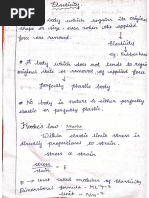 Elasticity
body which regains its original
shape or size even when the applied
force is removed.
Elasticity
eg: Rubber band
* A body which does not tends to regain
original state is removal of applied force
Perfectly plastic body
* No body in nature is either perfectly
elastic or perfectly plastic.
Hooke's law
Within elastic limit stress is
directly proportional to strain.
stress α strain
stress
strain = E
→ unit called modulus of elasticity
Dimensional formula = ML⁻¹T⁻²
unit = N m⁻²